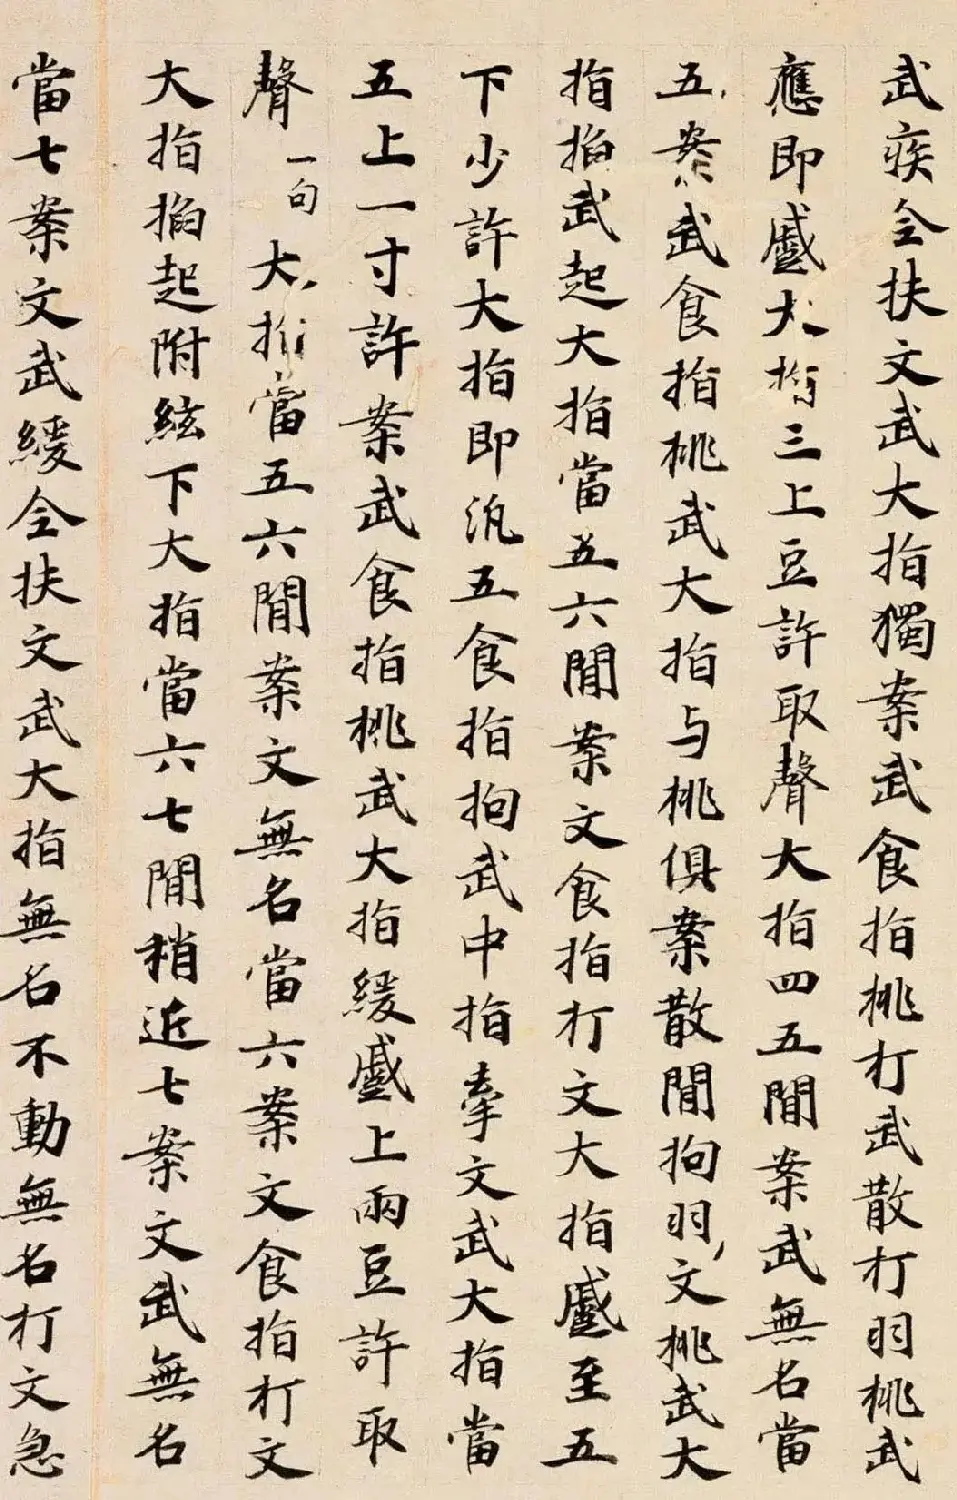 武疾全扶文武大指獨案武食指挑打武散打羽挑武
應即蹙大指三上豆許取聲大指四五間案武無名當
五案武食指挑武大指与挑俱案散間拘羽文挑武大
指掐武起大指當五六間案文食指打文大指蹙至五
下少許大指即汎五食指拘武中指牽文武大指當
五上一寸許案武食指挑武大指緩蹙上兩豆許取
聲一句大指當五六間案文無名當六案文食指打文
大指掐起附絃下大指當六七間稍近七案文武無名
當七案文武緩全扶文武大指無名不動無名打文急